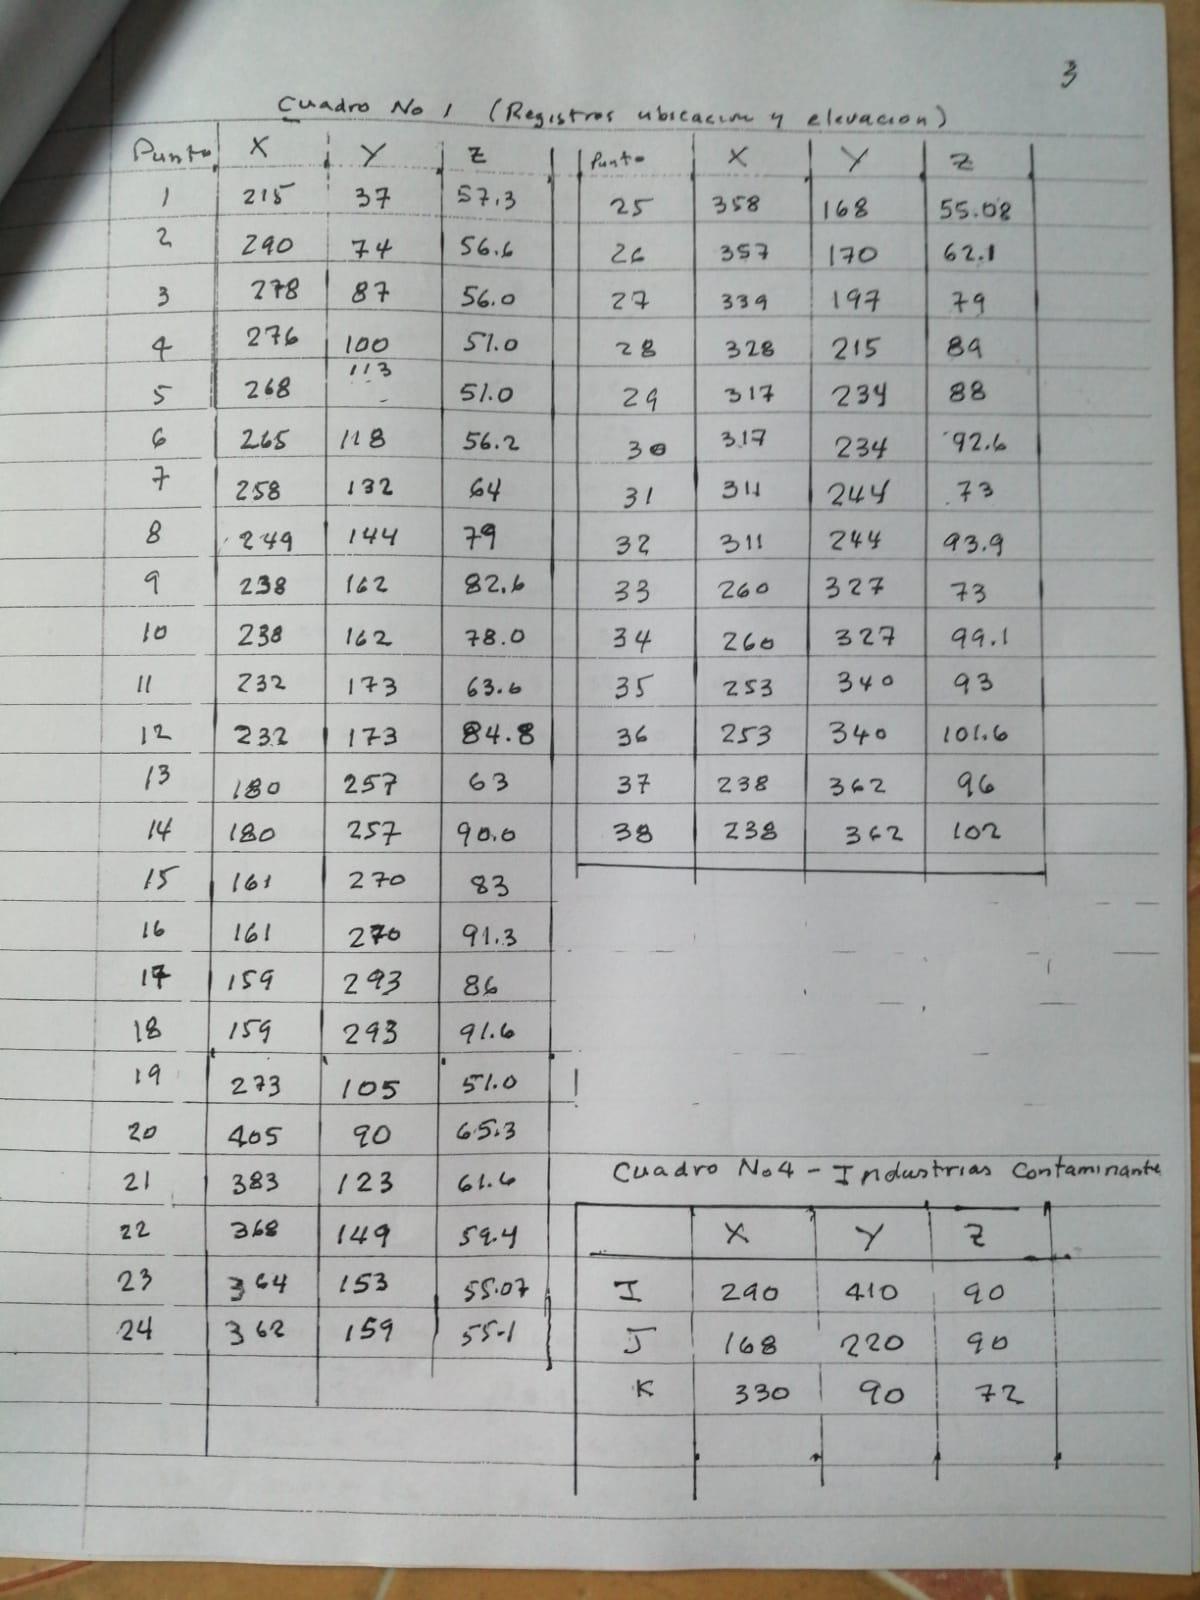 3
Cuadro No 1 (Registros ubicacion y elevacion)
Punto X Y Z Punto X Y Z
1 215 37 57.3 25 358 168 55.08
2 290 74 56.6 26 357 170 62.1
3 278 87 56.0 27 339 197 79
4 276 100 51.0 28 328 215 89
5 268 113 51.0 29 317 234 88
6 265 118 56.2 30 317 234 92.6
7 258 132 64 31 311 244 73
8 249 144 79 32 311 244 93.9
9 238 162 82.6 33 260 327 73
10 238 162 78.0 34 260 327 99.1
11 232 173 63.6 35 253 340 93
12 232 173 84.8 36 253 340 101.6
13 180 257 63 37 238 362 96
14 180 257 90.0 38 238 362 102
15 161 270 83
16 161 270 91.3
17 159 293 86
18 159 293 91.6
19 273 105 51.0
20 405 90 65.3
21 383 123 61.6
22 368 149 59.4
23 364 153 55.07
24 362 159 55.1
Cuadro No 4 - Industrias Contaminante
X Y Z
I 290 410 90
J 168 220 90
K 330 90 72